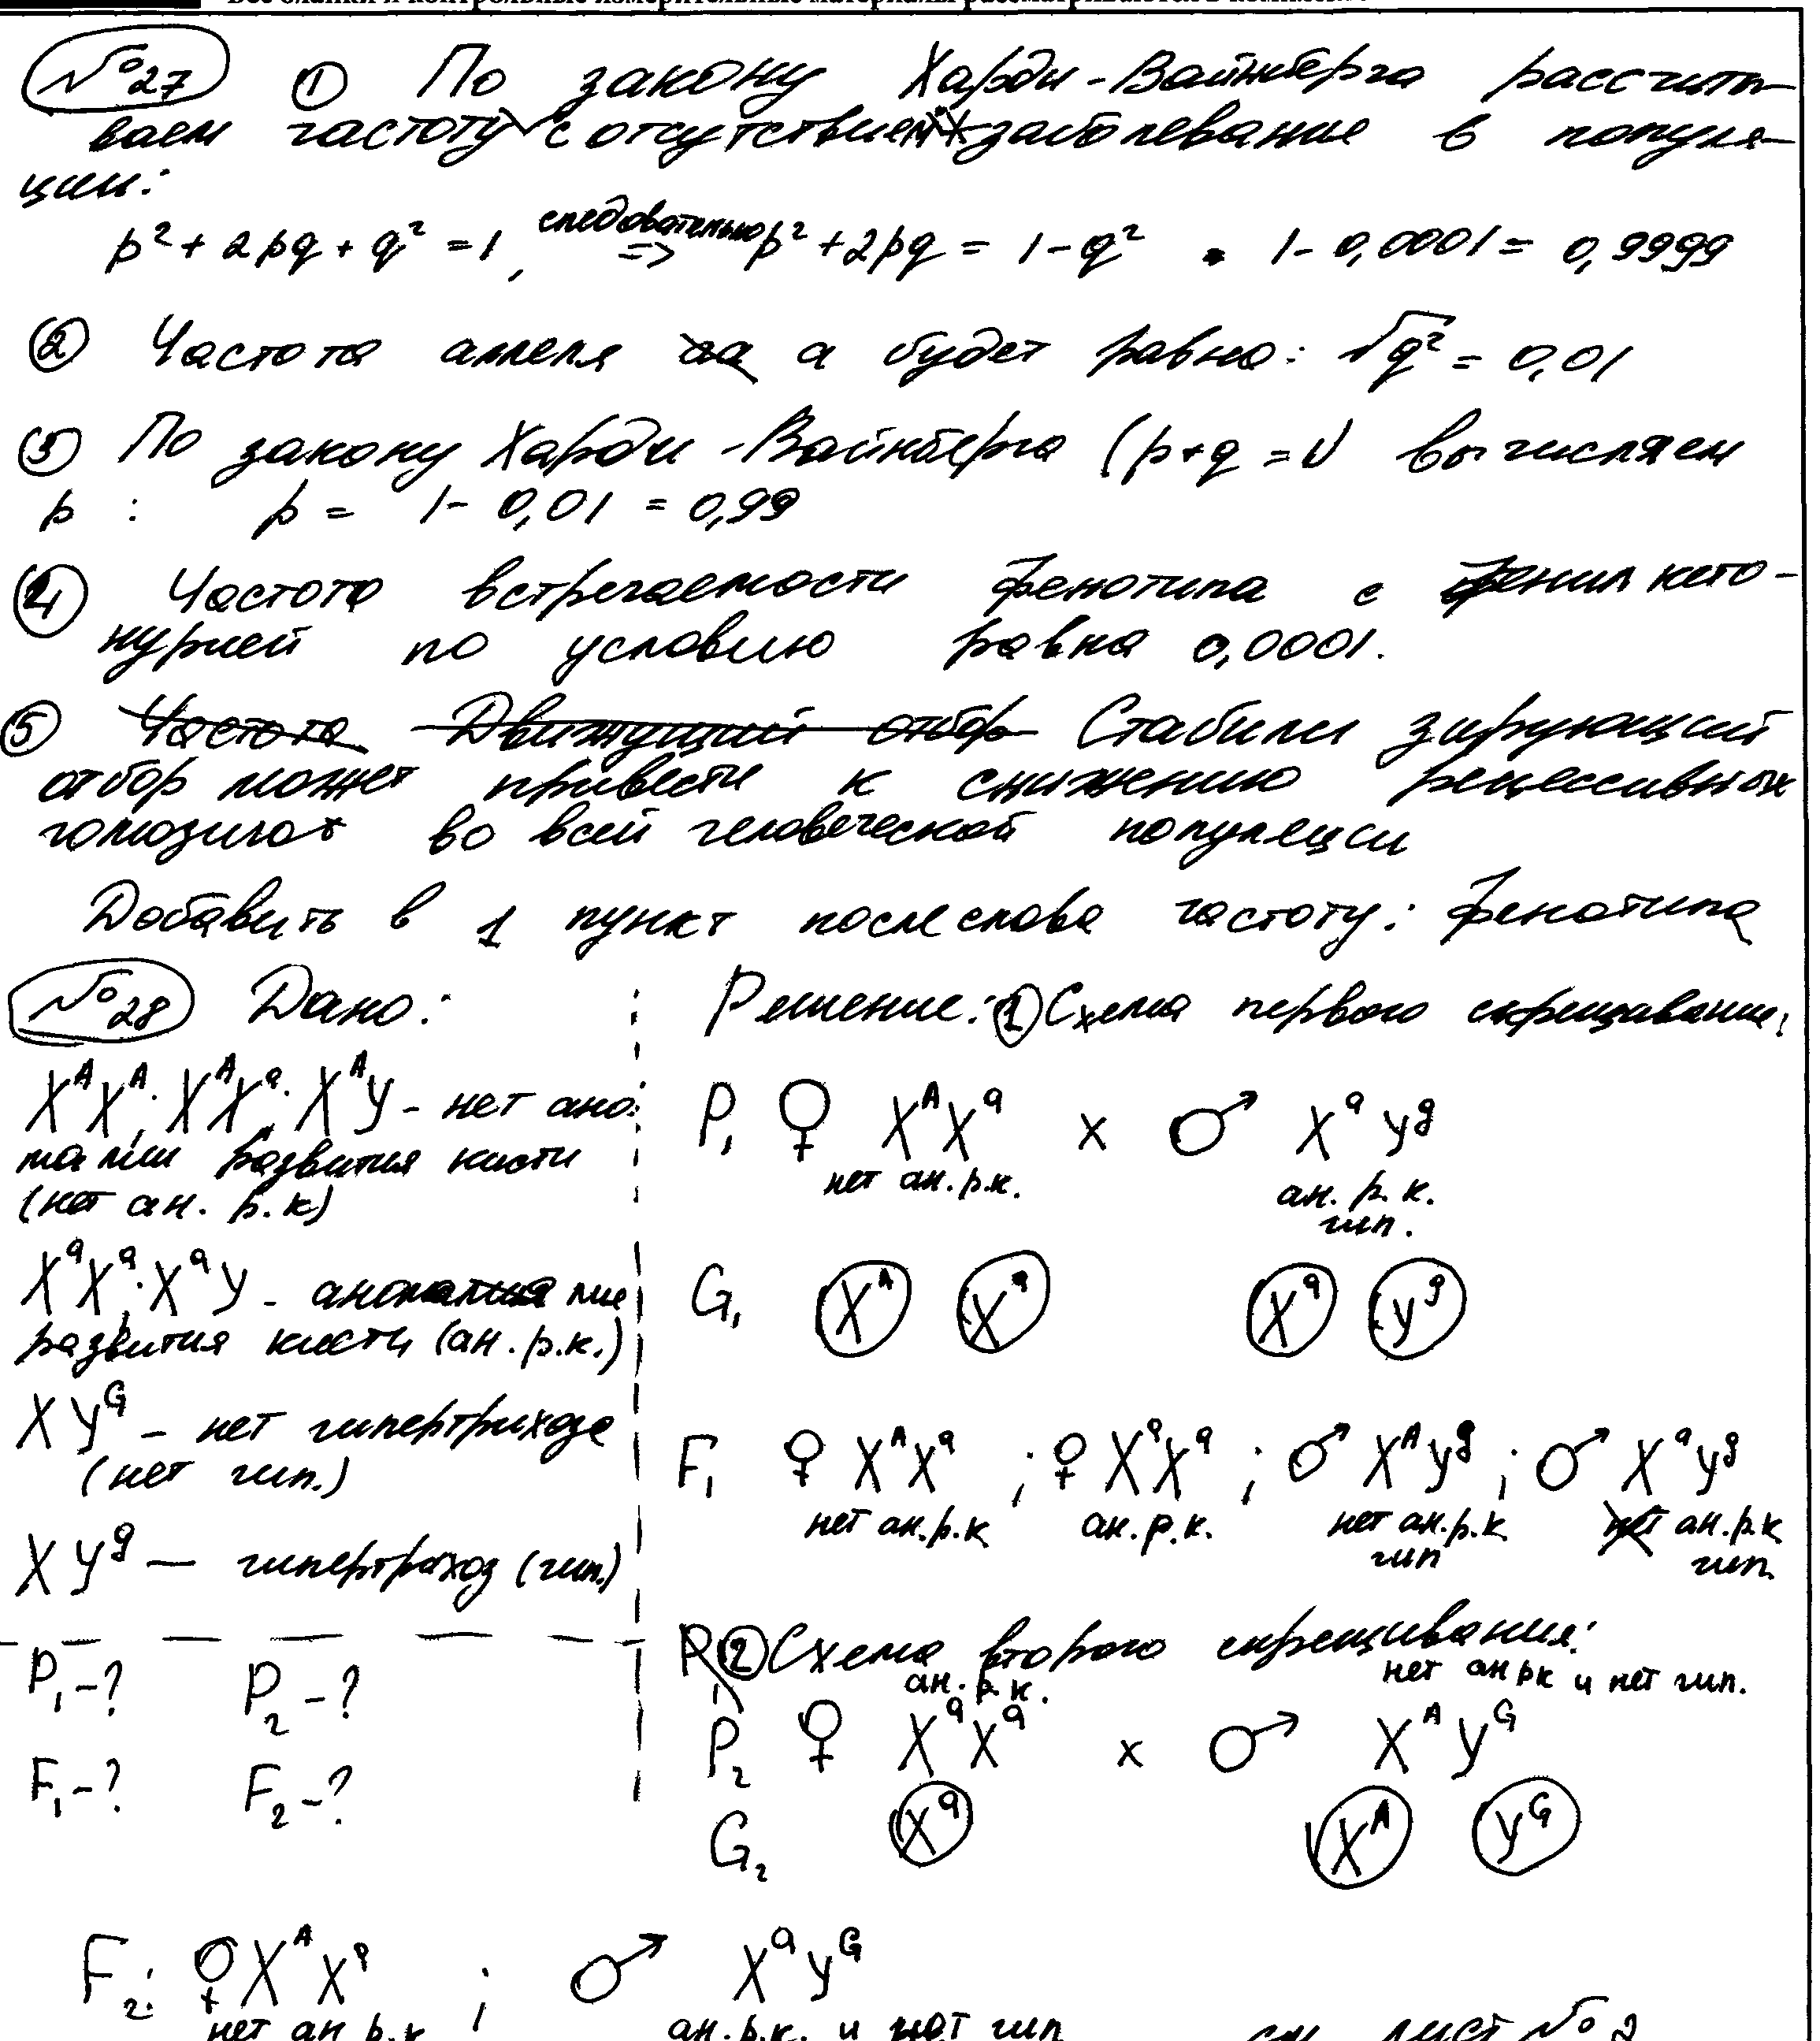 Все бланки и контрольные измерительные материалы рассматриваются в комплекте
№27 ① По закону Харди-Вайнберга рассчиты-
ваем частоту с отсутствием заболевание в популя-
ции:
p² + 2pq + q² = 1, следовательно => p² + 2pq = 1 - q² = 1 - 0,0001 = 0,9999
② Частота аллеля а будет равна: √q² = 0,01
③ По закону Харди-Вайнберга (p+q=1) вычисляем
p : p = 1- 0,01 = 0,99
④ Частота встречаемости фенотипа с фенилкето-
нурией по условию равна 0,0001.
⑤ Частота Движущий отбор Стабилизирующий
отбор может привести к снижению рецессивных
гомозигот во всей человеческой популяции
Добавить в 1 пункт после слова частоту: фенотипа
№28 Дано:
X^A X^A; X^A X^a; X^A Y - нет ано-
малии развития кисти
(нет ан. р.к)
X^a X^a; X^a Y - аномалия
развития кисти (ан.р.к.)
X Y^G - нет гипертрихоза
(нет гип.)
X Y^g — гипертрихоз (гип.)
P₁ -? P₂ -?
F₁ -? F₂ -?
Решение: ① Схема первого скрещивания:
P₁ ♀ X^A X^a x ♂ X^a Y^g
нет ан.р.к. ан. р. к.
гип.
G₁ X^A X^a X^a Y^g
F₁ ♀ X^A X^a ; ♀ X^a X^a ; ♂ X^A Y^g ; ♂ X^a Y^g
нет ан.р.к ан.р.к. нет ан.р.к нет ан.р.к
гип гип.
② Схема второго скрещивания:
ан.р.к. нет ан рк и нет гип.
P₂ ♀ X^a X^a x ♂ X^A Y^G
G₂ X^a X^A Y^G
F₂: ♀ X^A X^a ; ♂ X^a Y^G
нет ан р.к ан.р.к. и нет гип
см. лист №2